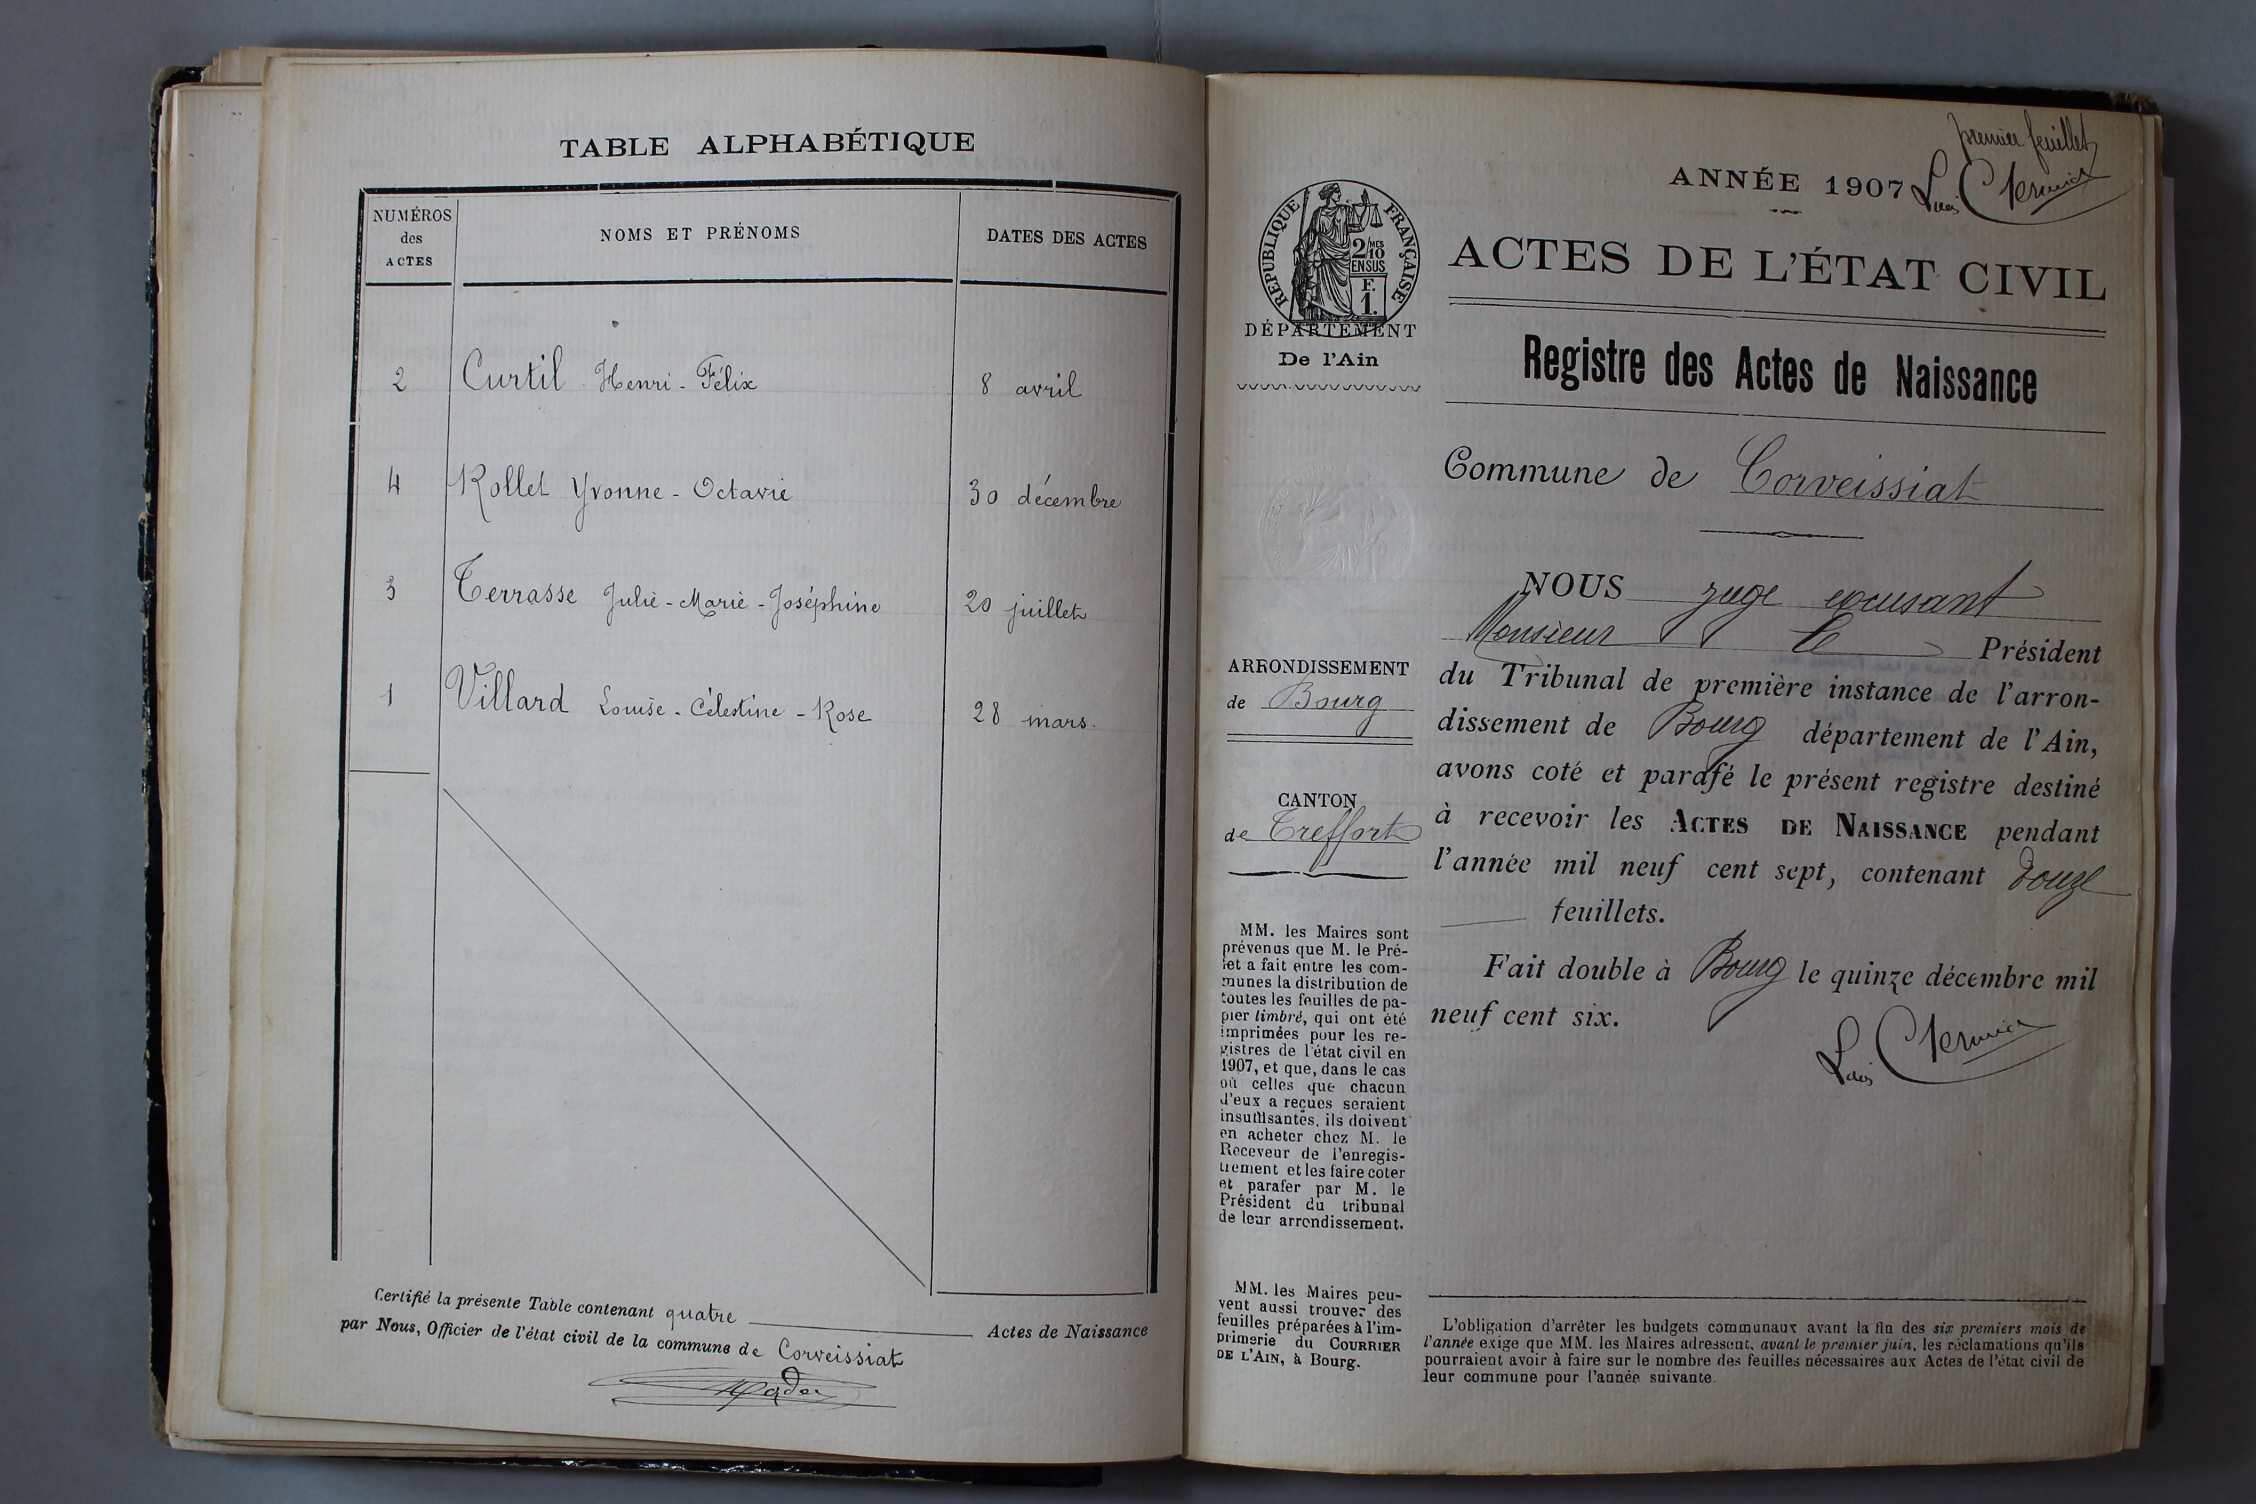 TABLE ALPHABÉTIQUE
NUMÉROS
des
ACTES
NOMS ET PRÉNOMS
DATES DES ACTES
2 Curtil Henri - Félix 8 avril
4 Rollet Yvonne - Octavie 30 décembre
3 Terrasse Julie - Marie - Joséphine 20 juillet
1 Villard Louise - Célestine - Rose 28 mars.
Certifié la présente Table contenant quatre Actes de Naissance
par Nous, Officier de l'état civil de la commune de Corveissiat
premier feuillet
ANNÉE 1907
RÉPUBLIQUE FRANÇAISE
2/10 MES
EN SUS
F.
1.
DÉPARTEMENT
De l'Ain
ACTES DE L'ÉTAT CIVIL
Registre des Actes de Naissance
Commune de Corveissiat
ARRONDISSEMENT
de Bourg
CANTON
de Treffort
MM. les Maires sont
prévenus que M. le Pré-
fet a fait entre les com-
munes la distribution de
toutes les feuilles de pa-
pier timbré, qui ont été
imprimées pour les re-
gistres de l'état civil en
1907, et que, dans le cas
où celles que chacun
d'eux a reçues seraient
insuffisantes, ils doivent
en acheter chez M. le
Receveur de l'enregis-
trement et les faire coter
et parafer par M. le
Président du tribunal
de leur arrondissement.
MM. les Maires peu-
vent aussi trouver des
feuilles préparées à l'im-
primerie du COURRIER
DE L'AIN, à Bourg.
NOUS juge excusant
Monsieur le Président
du Tribunal de première instance de l'arron-
dissement de Bourg département de l'Ain,
avons coté et parafé le présent registre destiné
à recevoir les ACTES DE NAISSANCE pendant
l'année mil neuf cent sept, contenant douze
feuillets.
Fait double à Bourg le quinze décembre mil
neuf cent six.
L'obligation d'arrêter les budgets communaux avant la fin des six premiers mois de
l'année exige que MM. les Maires adressent, avant le premier juin, les réclamations qu'ils
pourraient avoir à faire sur le nombre des feuilles nécessaires aux Actes de l'état civil de
leur commune pour l'année suivante.